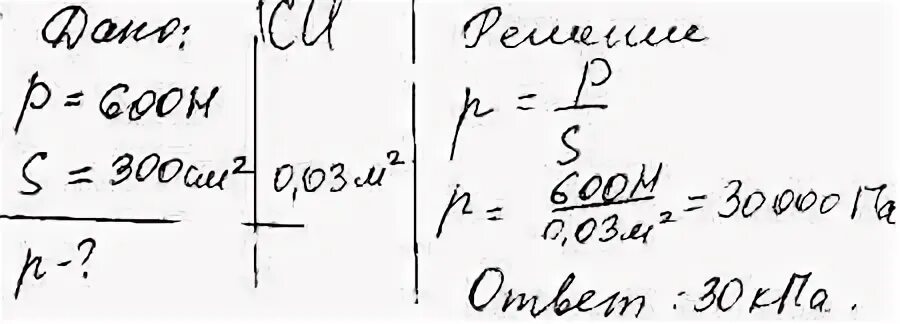 Дано:
P = 600Н
S = 300см²
p - ?
СИ
0,03м²
Решение
p = P/S
p = 600Н/0,03м² = 30000Па
Ответ: 30кПа.